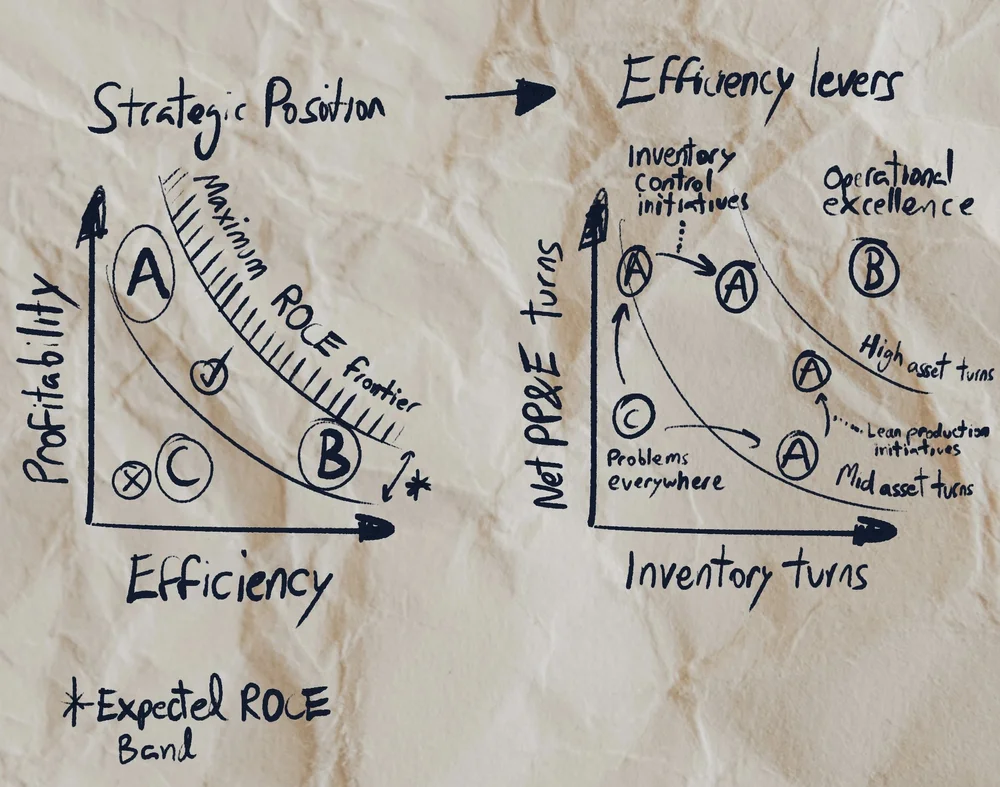 Strategic Position
Efficiency levers
Profitability
A
Maximum ROCE frontier
B
C
*
Efficiency
*Expected ROCE
Band
Inventory
control
initiatives
Operational
excellence
Net PP&E turns
A
A
B
High asset turns
A
C
Lean production
initiatives
Problems
everywhere
A
Mid asset turns
Inventory turns